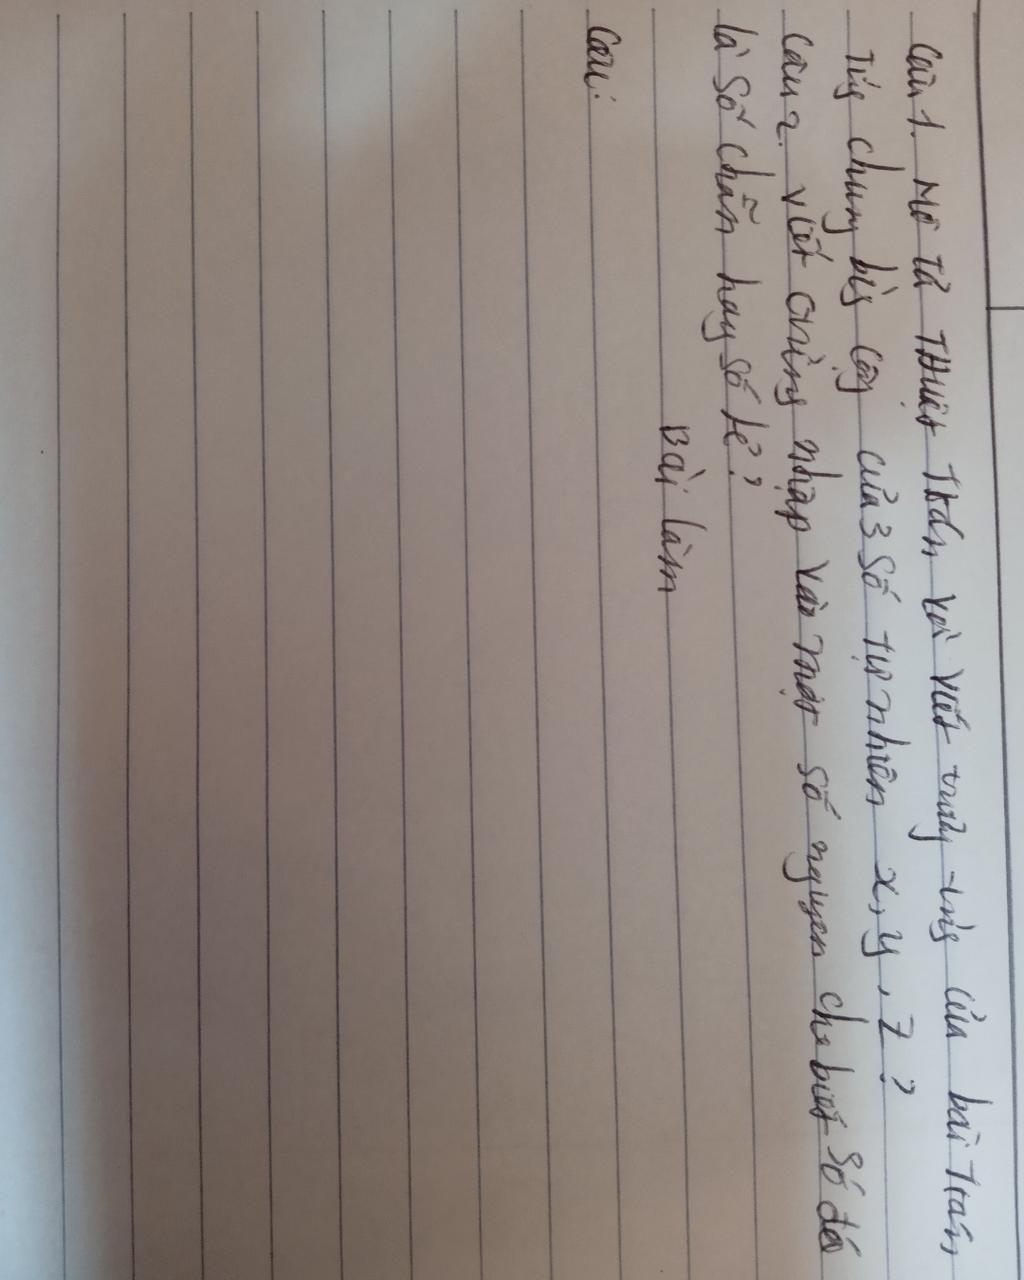 Câu 1. Mô tả Thuật Toán và viết chương trình của bài Toán
Tính chung bình cộng của 3 số tự nhiên x, y, z?
Câu 2. Viết chương nhập vào một số nguyên cho biết số đó
là số chẵn hay số lẻ?
Bài làm
Câu: